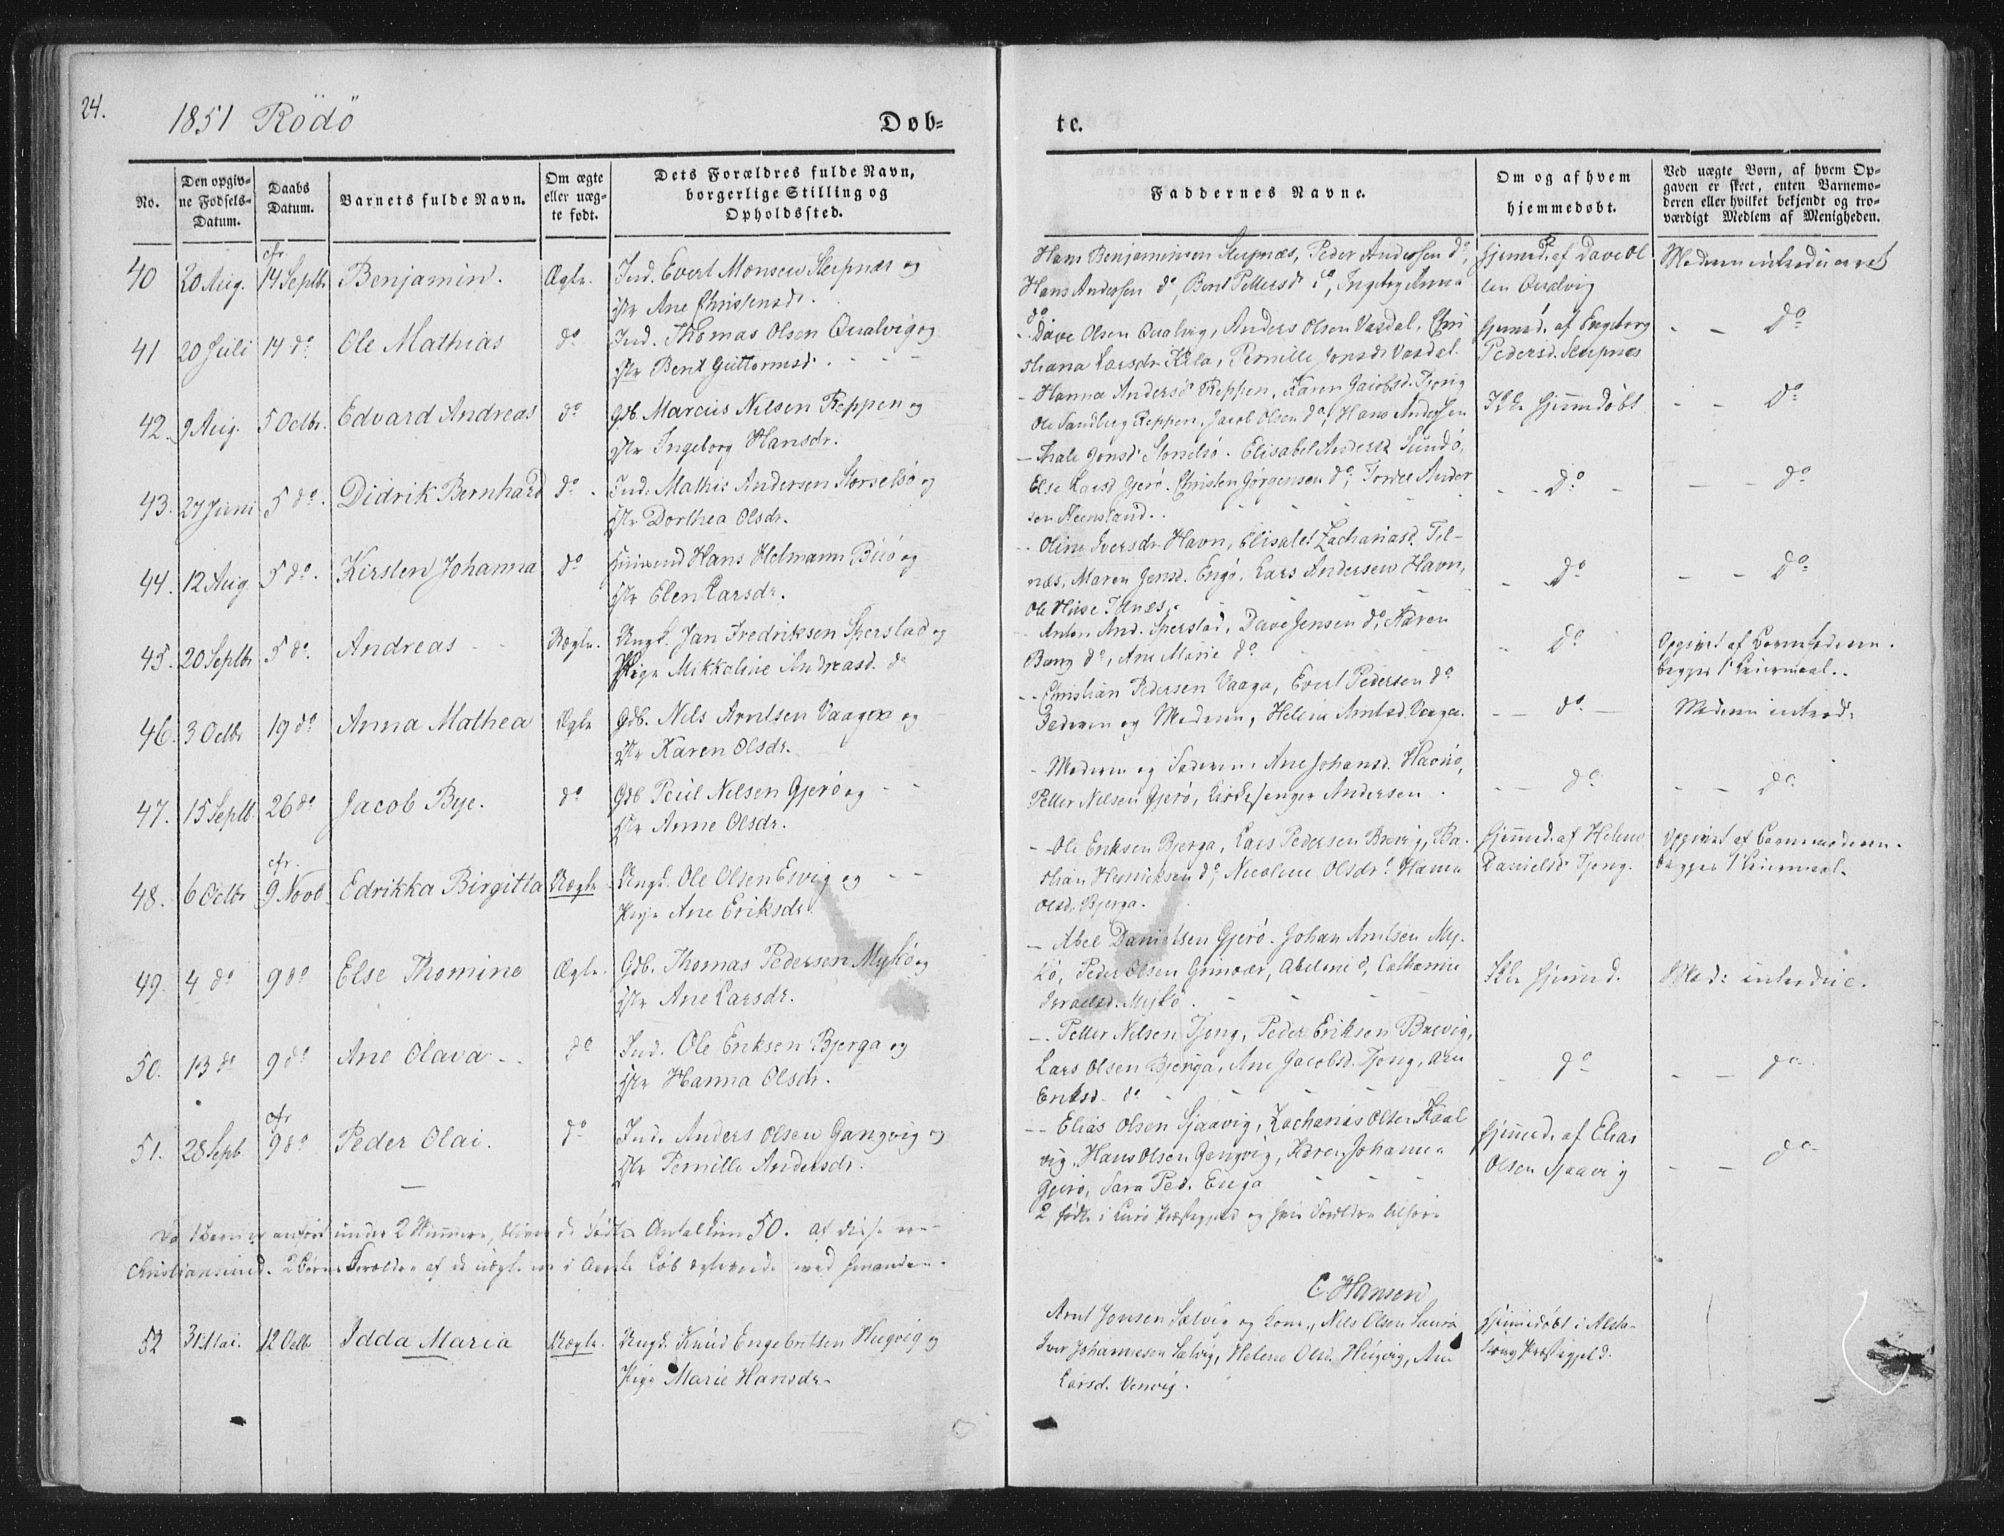 24.
1851 Rödö
Døb-
te.
No.
Den opgiv-
ne Fødsels-
Datum.
Daabs
Datum.
Barnets fulde Navn.
Om ægte
eller uæg-
te født.
Dets Forældres fulde Navn,
borgerlige Stilling og
Opholdssted.
Faddernes Navne.
Om og af hvem
hjemmedøbt.
Ved uægte Børn, af hvem Op-
gaven er skeet, enten Barnemo-
deren eller hvilket bekjendt og tro-
værdigt Medlem af Menigheden.
40 20 Aug. 14 Septbr Benjamin. Ægte. Ind. Evert Monsen Slepnæs og
Hr Ane Christensdr.
Hans Benjaminsen Slepnæs, Peder Andersen do,
Hans Andersen do,
Hjemd. af Dave Ol
sen Qualvig
Moderen introduceret
41 20 Juli 14 do Ole Mathias do Ind. Thomas Olsen Qualvig og
Hr Berit Guttormsd.
Dave Olsen Qualvig, Anders Olsen Vasdal, Chri
stiana Larsdr Kila, Pernille Jonsdr Vasdal.
Hjemd. af Engeborg
Pedersd. Slepnæs
- - do
42. 9 Aug. 5 Octbr. Edvard Andreas do Gdb. Marcus Nilsen Reppen og
Hr Ingeborg Hansdr.
- Hanna Andersdr Reppen, Karen Jacobsd. Tjong
Ole Sandberg Reppen, Jacob Olsen do, Hans Andersen
Ikke hjemmedøbt
- - do
43. 27 Juni 5 do. Didrik Bernhard do. Ind. Mathis Andersen Storselsø og
Hr Dorthea Olsdr.
- Thale Jonsd Storselsø. Elisabet Andersd Sundø,
Else Larsd Gjerø. Christen Jørgensen do, Tordei Ander
sen
- - do -
- - do
44. 12 Aug. 5 do. Kirsten Johanna do Hans Helmann Buø og
Hr Elen Larsdr.
- Oline Iversdr Havn, Elisabet Zachariasd. Til-
næs, Maren Jensd. Engø. Lars Andersen Havn,
Ole Huse Tilnæs.
- do
- - do
45. 20 Septbr 5 do. Andreas - - Uægte. Ungk. Jan Fredriksen Sperstad og
Pige Mikkeline Andreasd. do
- Anton And. Sperstad, Dave Jensen do, Karen
Bang do, Ane Marie do
- do
Opgivet af Barnemoderen.
begges 1 Leiermaal.
46. 3 Octbr 19 do Anna Mathea Ægte Gdb. Nils Arntsen Vaagen og
Hr Karen Olsdr.
- Christian Pedersen Vaaga, Evert Pedersen do
Faderen og Moderen, Helene Arntsd. Vaaga.
- do -
Moderen introd.
47. 15 Septb. 26 do Jacob Bye. do Gdb Poul Nilsen Gjerø og
Hr Anne Olsdr.
- Moderen og Faderen, Ane Johansd. Havnø,
Petter Nilsen Gjerø, Kirkesanger Andersen.
- - do
- - do
48. 6 Octbr 9 Novb Edrikka Birgitta Uægte. Ungk. Ole Olsen Esvig og
Pige Ane Eriksdr.
- Ole Eriksen Bjerga, Lars Pedersen Barvig, Ba-
stian Henriksen do, Nicoline Olsdr. Hanna
Olsd. Bjerga.
Hjemmed. af Helene
Danielsd Tjong.
Opgivet af Barnemoderen.
begges 1 Leiermaal.
49. 4 do 9 do Else Thomine Ægte. Gdb. Thomas Pedersen Mykø og
Hr Ane Larsdr.
- Abel Danielsen Gjerø. Johan Arntsen My-
kø, Peder Olsen Grinvær, Abeline do, Cathrine
Israelsd. Mykø.
Ikke hjemmed.
Mod: introduc.
50. 13 do 9 do Ane Olava - . do Ind. Ole Eriksen Bjerga og
Hr Hanna Olsdr.
-. Petter Nilsen Tjong, Peder Eriksen Barvig,
Lars Olsen Bjerga, Ane Jacobsd. Tjong, Ane
Eriksd. do
- do
- - do.
51. 28 Sept 9 do Peder Olai. do Ind. Anders Olsen Gangvig og
Hr Pernille Andersdr.
- Elias Olsen Sjaavig, Zacharias Olsen Kaal
vig. Hans Olsen Gangvig, Karen Johanna
Gjerø, Sara Ped. Enga
Hjemmed. af Elias
Olsen Sjaavig
- - do
2 fødte i Præstegjeld og
anført under 2 Nummere, bliver de Fødtes Antal kun 50. af disse
C Hansen
52 31 Mai. 12 Octb Idda Maria Uægte. Ungk. Knud Engebritsen Hugvig og
Pige Marie Hansdr.
Arnt Jonsen Selvig og Kone, Nils Olsen
Iver Johannesen Selvig, Helene Olsd. Hugvig, Ane
Larsd. Venvig.
Hjemmedøbt i
Præstegjeld.